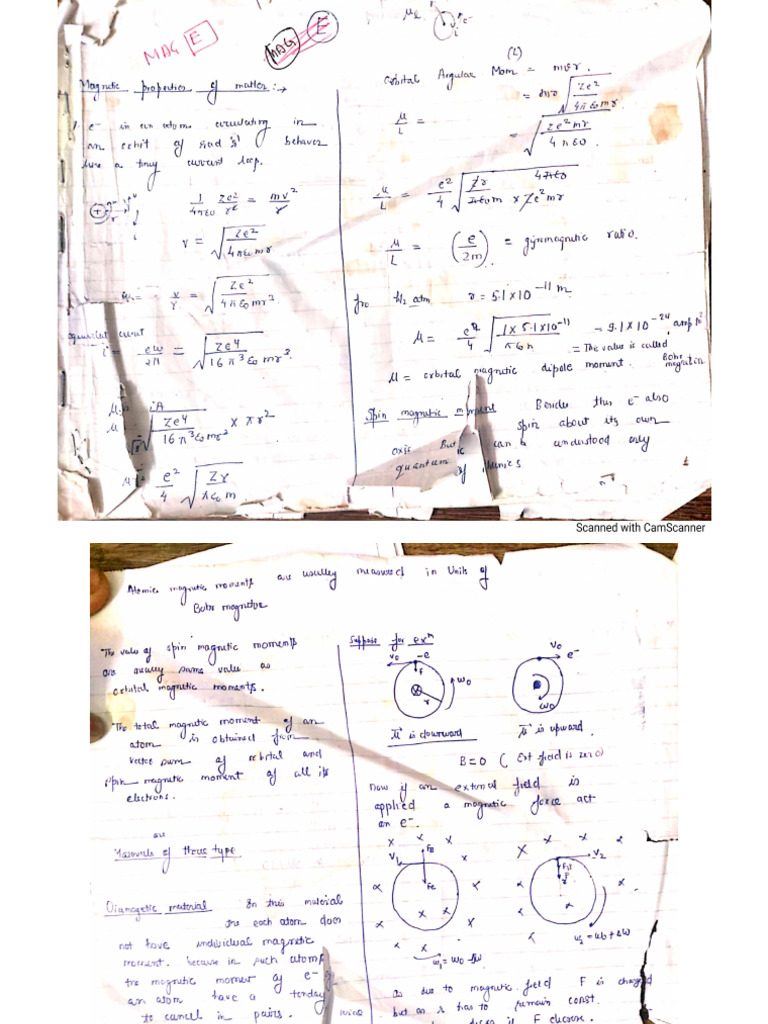 MAG E
MAG E
Magnetic properties of matter :→
1. e⁻ in an atom circulating in
an orbit of rad 'r' behaves
like a tiny current loop.
1/4πε0 ze²/r² = mv²/r
v = √(Ze²/4πε₀mr)
= v/r = √(Ze²/4πε₀mr³)
equivalent current
i = eω/2π = √(Ze⁴/16π³ε₀mr³)
iA
√(Ze⁴/16π³ε₀mr³) × πr²
e²/4 √(Zr/πε₀m)
e⁻
L
(L)
Orbital Angular Mom = mvr.
= mr √(Ze²/4πε₀mr)
μ/L = = √(Ze²mr/4πε0)
μ/L = e²/4 √(Zr/πε0m × 4πε0/Ze²mr)
μ/L = (e/2m) = gyromagnetic ratio.
for H₂ atm r = 5.1×10⁻¹¹ m
μ = e²/4 √(1×5.1×10⁻¹¹/) = 9.1×10⁻²⁴ amp m²
= The value is called
Bohr
μ = orbital magnetic dipole moment. magneton
Spin magnetic moment Besides this e⁻ also
spin about its own
axis. But can be understood only
quantum
Scanned with CamScanner
Atomic magnetic moments are usually measured in Units of
Bohr magneton
The value of spin magnetic moments
are usually same value as
orbital magnetic moments.
The total magnetic moment of an
atom is obtained from
vector sum of orbital and
spin magnetic moment of all its
electrons.
are
Materials of three type
Diamagnetic material In this material
the each atom does
not have individual magnetic
moment. because in such atoms
the magnetic moment of e⁻ of
an atom have a tendency
to cancel in pairs.
Suppose for exⁿ
v₀ -e
F
r
ω₀
v₀ e⁻
ω₀
μ⃗ is downward
μ⃗ is upward
B = 0 ( Ext field is zero)
Now if an external field is
applied a magnetic force act
an e⁻.
v₁
Fe
v₂
ω₁ = ω₀ - δω
ω₂ = ω₀ + δω
as due to magnetic field F is changed
but as r has to remain const.